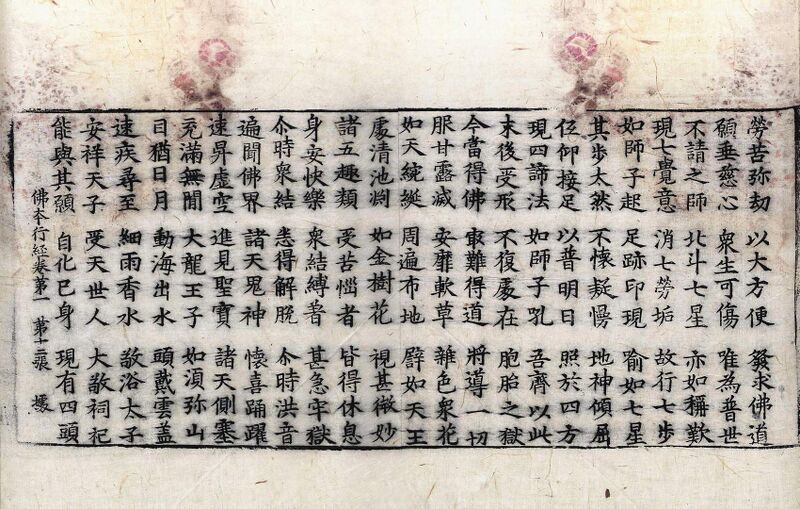 勞苦弥劫 以大方便 發求佛道
願垂慈心 衆生可傷 唯為普世
不請之師 北斗七星 亦如稱歎
現七覺意 消七勞垢 故行七步
如師子起 足跡印現 喻如七星
其步太然 不懷疑慢 地神傾屈
伍仰接足 以普明日 照於四方
現四諦法 如師子吼 吾齊以此
末後受形 不復處在 胞胎之獄
今當得佛 㝡難得道 將導一切
服甘露滅 安靡軟草 雜色衆花
如天綩綖 周遍布地 譬如天王
處清池𣵀 如金樹花 視甚微妙
諸五趣類 受苦惱者 皆得休息
身安快樂 衆結縛著 甚急牢獄
尒時衆結 悉得解脫 尒時洪音
遍聞佛界 諸天鬼神 懷喜踊躍
速昇虛空 進見聖寶 諸天側塞
充滿無閒 大龍王子 如湏弥山
日猶日月 動海出水 頭戴雲盖
速疾尋至 細雨香水 敬浴太子
安祥天子 受天世人 大敬祠祀
能與其願 自化巳身 現有四頭
佛夲行經卷第一 第十二張